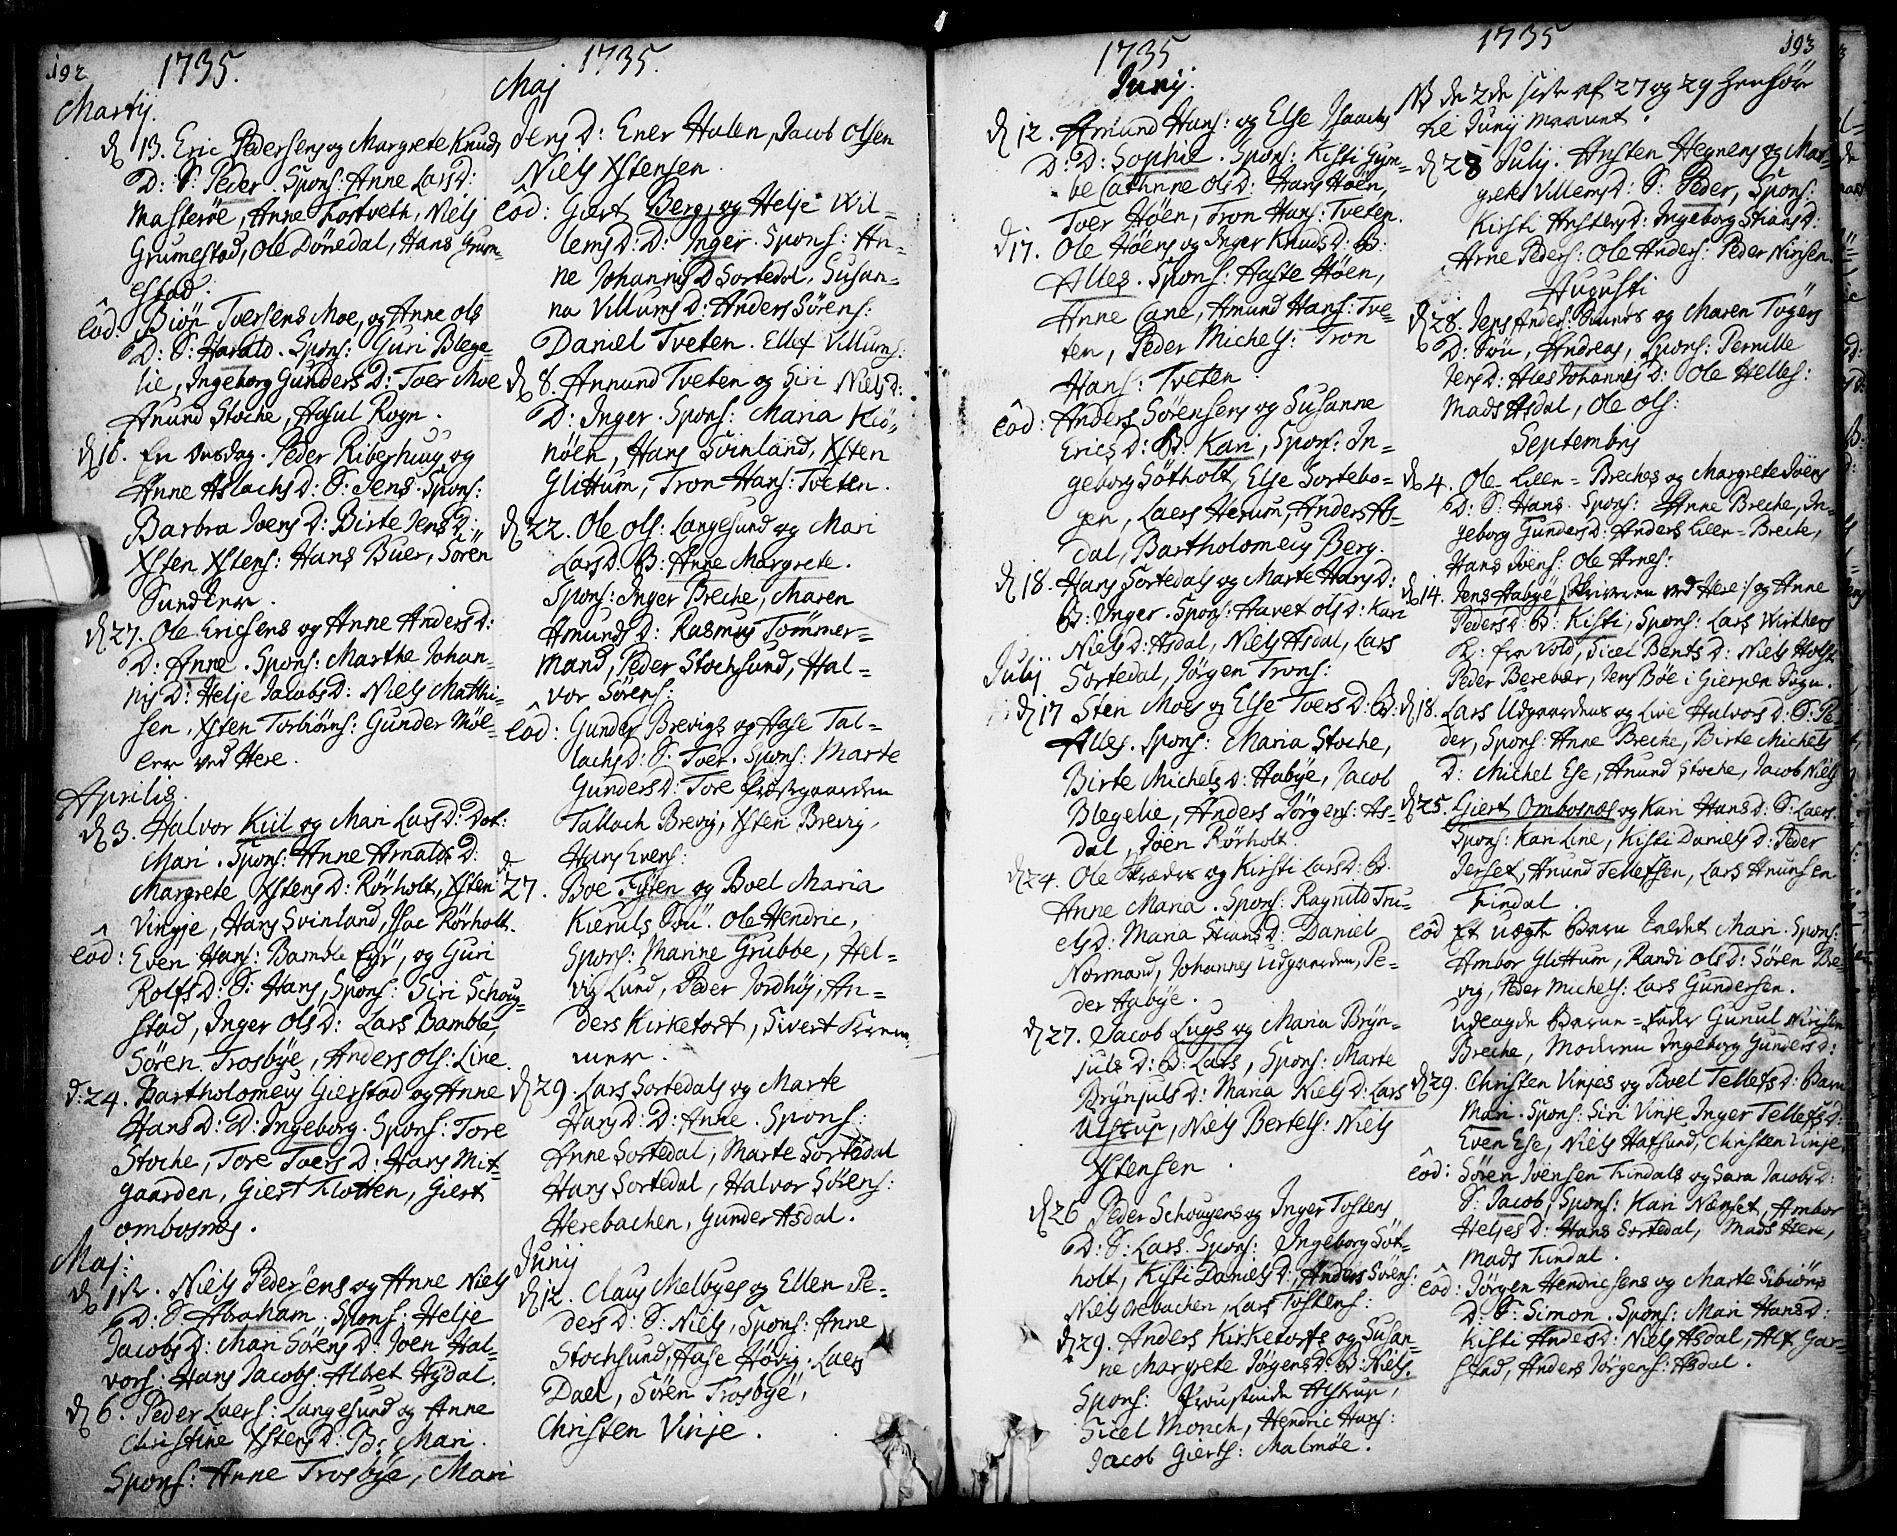 192 1735.
Martij.
d 13. Eric Pedersens og Margrete Knuds
D: S: Peder. Spons: Anne LarsD:
Masteröe, Anne Tostveth, Niels
Grumestad, Ole Dönedal, Hans Grum-
estad.
eôd: Biön Tversens Moe, og Anne Ols
D: S: Harald. Spons: Guri Blege-
lie, Ingeborg GundersD: Toer Moe
Anund Stoche, Aasul Rogn.
d 16. En Onsdag. Peder Riverhuus og
Anne AslachsD: S: Jens. Spons:
Barbra JoensD: Birte JensD:
Xsten Xstens: Hans Buer, Sören
d 27. Ole Ericsens og Anne AndersD:
D: Anne. Spons: Marthe Johan-
nisD: Helje JacobsD: Niels Matthi-
sen, Xsten Torbiörns: Gunder Möl-
ler ved Here.
Aprilis.
d 3. Halvor Kiil og Mari LarsD: Dot:
Mari. Spons: Anne ArnoldsD:
Margrete XstensD: Rörholt, Xsten
Vinje, Hans Svinland, Isac Rörholt.
eôd: Even Hans: Bamble Eyr, og Guri
RolfsD: S: Hans, Spons: Siri Schoug-
stad, Inger OlsD: Lars Bamble,
Sören Trosbye, Anders Ols: Line.
d: 24. Bartholomeus Gierstad og Anne
HansD: D: Ingeborg. Spons: Tore
Stoche, Tore ToersD: Hans Mit-
gaarden, Giert Flotten, Giert
ombosnes.
Maj:
d 1st. Niels Peders'ens og Anne Niels
D: S Abraham. Spons: Helje
JacobsD: Mari SörensD: Joen Hal-
vors: Hans Jacobs: Albret Hydal.
d 6. Peder Laers: Langesund og Anne
Christine XstensD: B: Mari.
Spons: Anne Trosbye, Mari
1735.
Maj
JensD: Ener Hulen, Jacob Olsen
Niels Xstensen.
eôd: Giert Berg, og Helje Wil-
lemsD: D: Inger. Spons: An-
ne JohannisD Sortedal, Susan-
na VillumsD: Anders Sörens:
Daniel Tveten. Ellef Villums:
d 8. Annund Tveten og Siri NielsD:
D: Inger. Spons: Maria Klo-
nöen, Hans Svinland, Xsten
Glittum, Tron Hans: Tveten.
d 22. Ole Ols: Langesund og Mari
LarsD. B: Anne Margrete.
Spons: Inger Breche, Maren
AmundsD: Rasmus Tömmer-
mand, Peder Stochsund, Hal-
vor Sörens:
eôd: Gunder Brevigs og Aase Tal-
lachsD: S: Toer. Spons: Marte
GundersD: Tore Præstgaarden
Tallach Brevig, Xsten Brevig,
Hans Evens:
d 27. Boe Tyren og Boel Maria
Kieruls Sön: Ole Hendric,
Spons: Marine Grubbe, Hel-
vig Lund, Peder Jordhöj, An-
ders Kirketort, Sivert Krem-
mer.
d 29. Lars Sortedals og Marte
HansD: D: Anne. Spons:
Anne Sortedal, Marte Sortedal
Hans Sortedal, Halvor Sörens:
Herebachen, Gunder Asdal.
Junij
d 12. Claus Melbyes og Ellen Pe-
dersD: S: Niels, Spons: Anne
Stochsund, Aase Hövig. Laers
Dael, Sören Trosbye,
Christen Vinje.
1735
Junij.
d 12. Amund Hans: og Else Isaachs
D: D: Sophie. Spons: Kisti Gun-
be Cathrine OlsD: Hans Höen,
Toer Höen, Tron Hans: Tveten.
d 17. Ole Höens og Inger KnudsD: B:
Alles. Spons: Aaste Höen,
Anne Cane, Amund Hans: Tve-
ten, Peder Michels: Tron
Hans: Tveten
eôd: Anders Sörensens og Susanne
EricsD: B: Kari, Spons: In-
geborg Sötholt, Else Sortebo-
gen, Laers Herum, Anders As-
dal, Bartholomeus Berg.
d 18. Hans Sortedals og Marte HansD:
B: Inger. Spons: Aavet OlsD: Kari
NielsD: Asdal, Niels Asdal, Lars
Sortedal, Jörgen Trons:
Julij
d 17 Sten Moes og Else ToersD: B:
Alles. Spons: Maria Stoche,
Birte MichelsD: Aabye, Jacob
Blegelie, Anders Jörgens: As-
dal, Joen Rörholt.
d 24. Ole Skræder og Kirsti LarsD: B.
Anne Maria. Spons: Ragnild Tru-
elsD: Maria StiansD: Daniel
Normand, Johannes Udgaarden, Pe-
der Aabye.
d 27. Jacob Lugs og Maria Bryn-
julsD: B: Lars, Spons: Marte
BrynjulsD: Maria NielsD: Lars
Alstrup, Niels Bertels: Niels
Xstensen
d 26 Peder Schougens og Inger Tostens
D: S: Lars. Spons: Ingeborg Söt-
holt, Kisti DanielsD: Anders Sörens:
Niels Orebachen, Lars Tostens:
d 29. Anders Kirketorts og Susan-
ne Margrete JörgensD: B: Niels.
Spons: Alstrup,
Sicel Monch, Hendric Hans:
Jacob Gierts: Malmöe.
1735 193
NB de 2de siste af 27 og 29 henhör
til Junij Maanet.
d 28 Julij. Ansten Hegnens og Mar-
grete VillemsD: S: Peder, Spons:
Kirsti AnstensD: Ingeborg StiansD:
Arne Peders: Ole Anders: Peder Nirisen.
Augusti
d 28. Jens Anders: Sunds og Maren Tygers
D: Sön, Andreas, Spons: Pernille
JensD: Ales JohannesD: Ole Helles:
Mads Asdal, Ole Ols:
Septembris
d 4. Ole Lilen-Breches og Margrete Joens
D: S: Hans. Spons: Anne Breche, In-
geborg GundersD: Anders Lilen-Breche,
Hans Joens: Ole Arnes:
d 14. Jens Aabye Skriveren ved Here: og Anne
PedersD: B: Kisti, Spons: Lars Wirthers
K: fra Vold, Sicel BentsD: Niels Holst
Peder Berebær, Jens Böe i Gierpen Sogn.
d 18. Lars Udgaardens og Live HalvorsD: S: Pe-
der, Spons: Anne Breche, Birte Michels
D: Michel Ese, Anund Stoche, Jacob Niels
d 25. Giert Ombosnæs og Kari HansD: S: Laers.
Spons: Kari Line, Kisti DanielsD: Peder
Jerset, Anund Tellefsen, Lars Anunsen
Findal.
eôd Et uægte Barn kaldet Mari. Spons:
Ambor Glittum, Randi OlsD: Sören Bre-
vig, Peder Michels: Lars Gundersen.
udlagde Barne-Fader Gunul Nirisen
Breche, Moderen Ingeborg GundersD:
d 29. Christen Vinjes og Boel TellefsD: Barn
Mari. Spons: Siri Vinje Inger TellefsD:
Even Ese, Niels Hafsund, Christen Vinje.
eôd: Sören Joensen Findals og Sara JacobsD:
S: Jacob, Spons: Kari Nænset, Ambor
HeljesD: Hans Sortedal, Mads Here,
Mads Findal.
eôd: Jörgen Hendricsens og Marte Sibiörns
D: S: Simon. Spons: Mari HansD:
Kisti AndersD: Niels Asdal, Alf Gar-
stad, Anders Jörgens: Asdal.